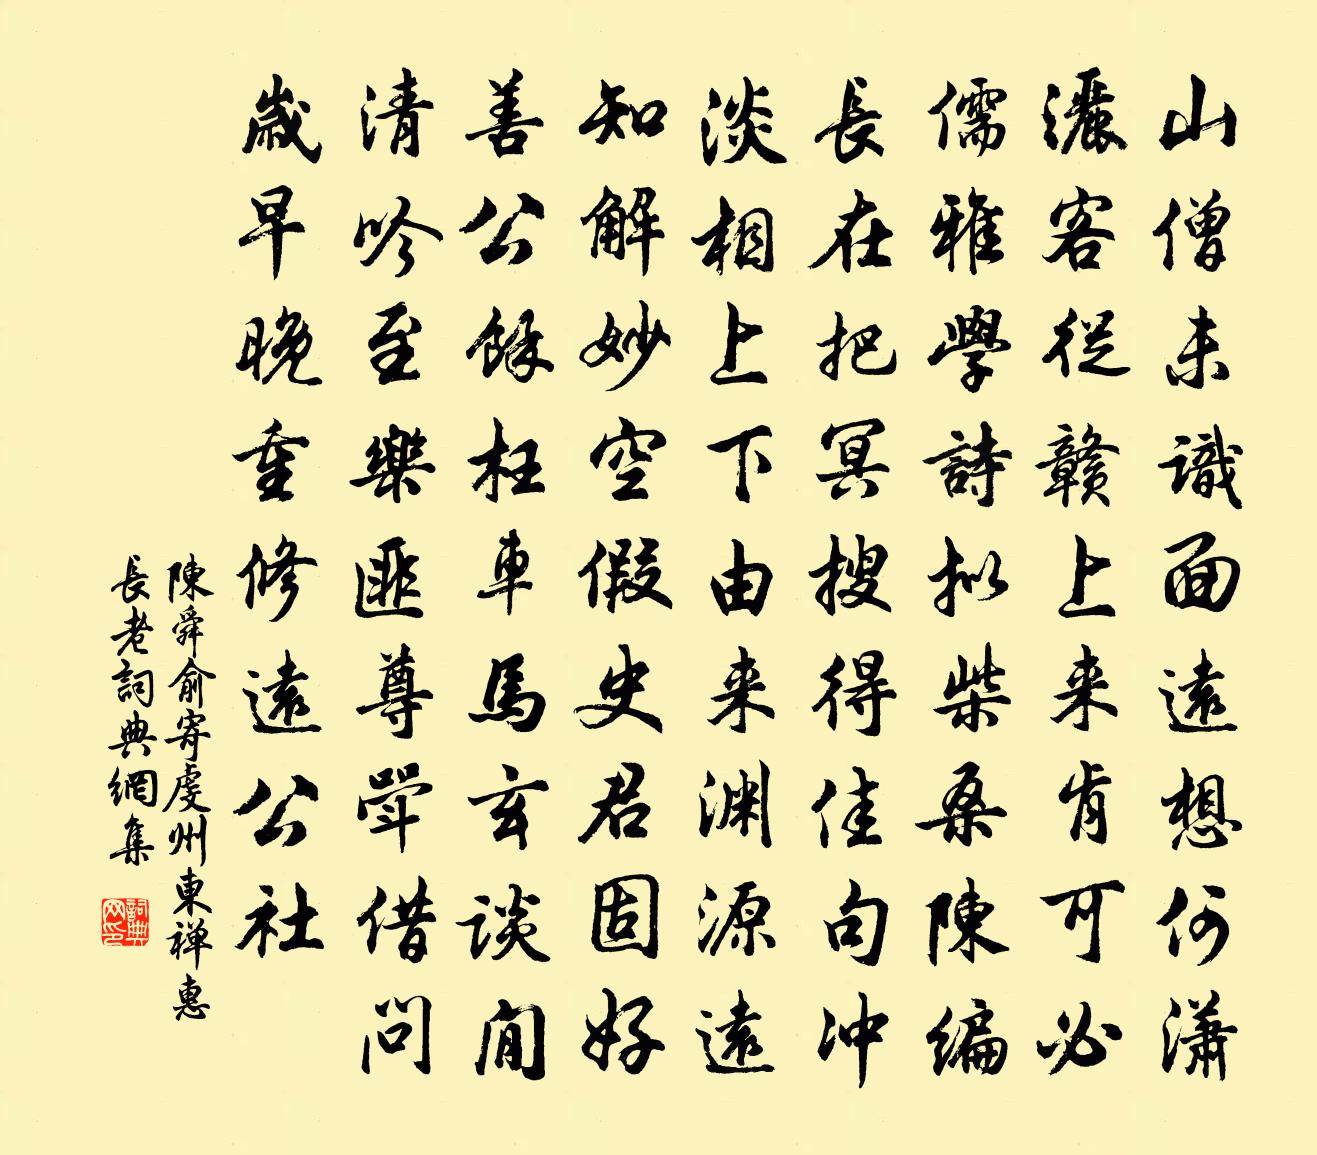 山僧未識面遠想何瀟
灑客從贛上来肯可必
儒雅學詩拟柴桑陳編
長在把冥搜得佳句冲
淡相上下由来淵源遠
知解妙空假史君固好
善公餘枉車馬玄談閒
清吟至樂匪尊斝借問
歲早晚重修遠公社
陳舜俞寄虔州東禅惠
長老詞典網集
詞典网印